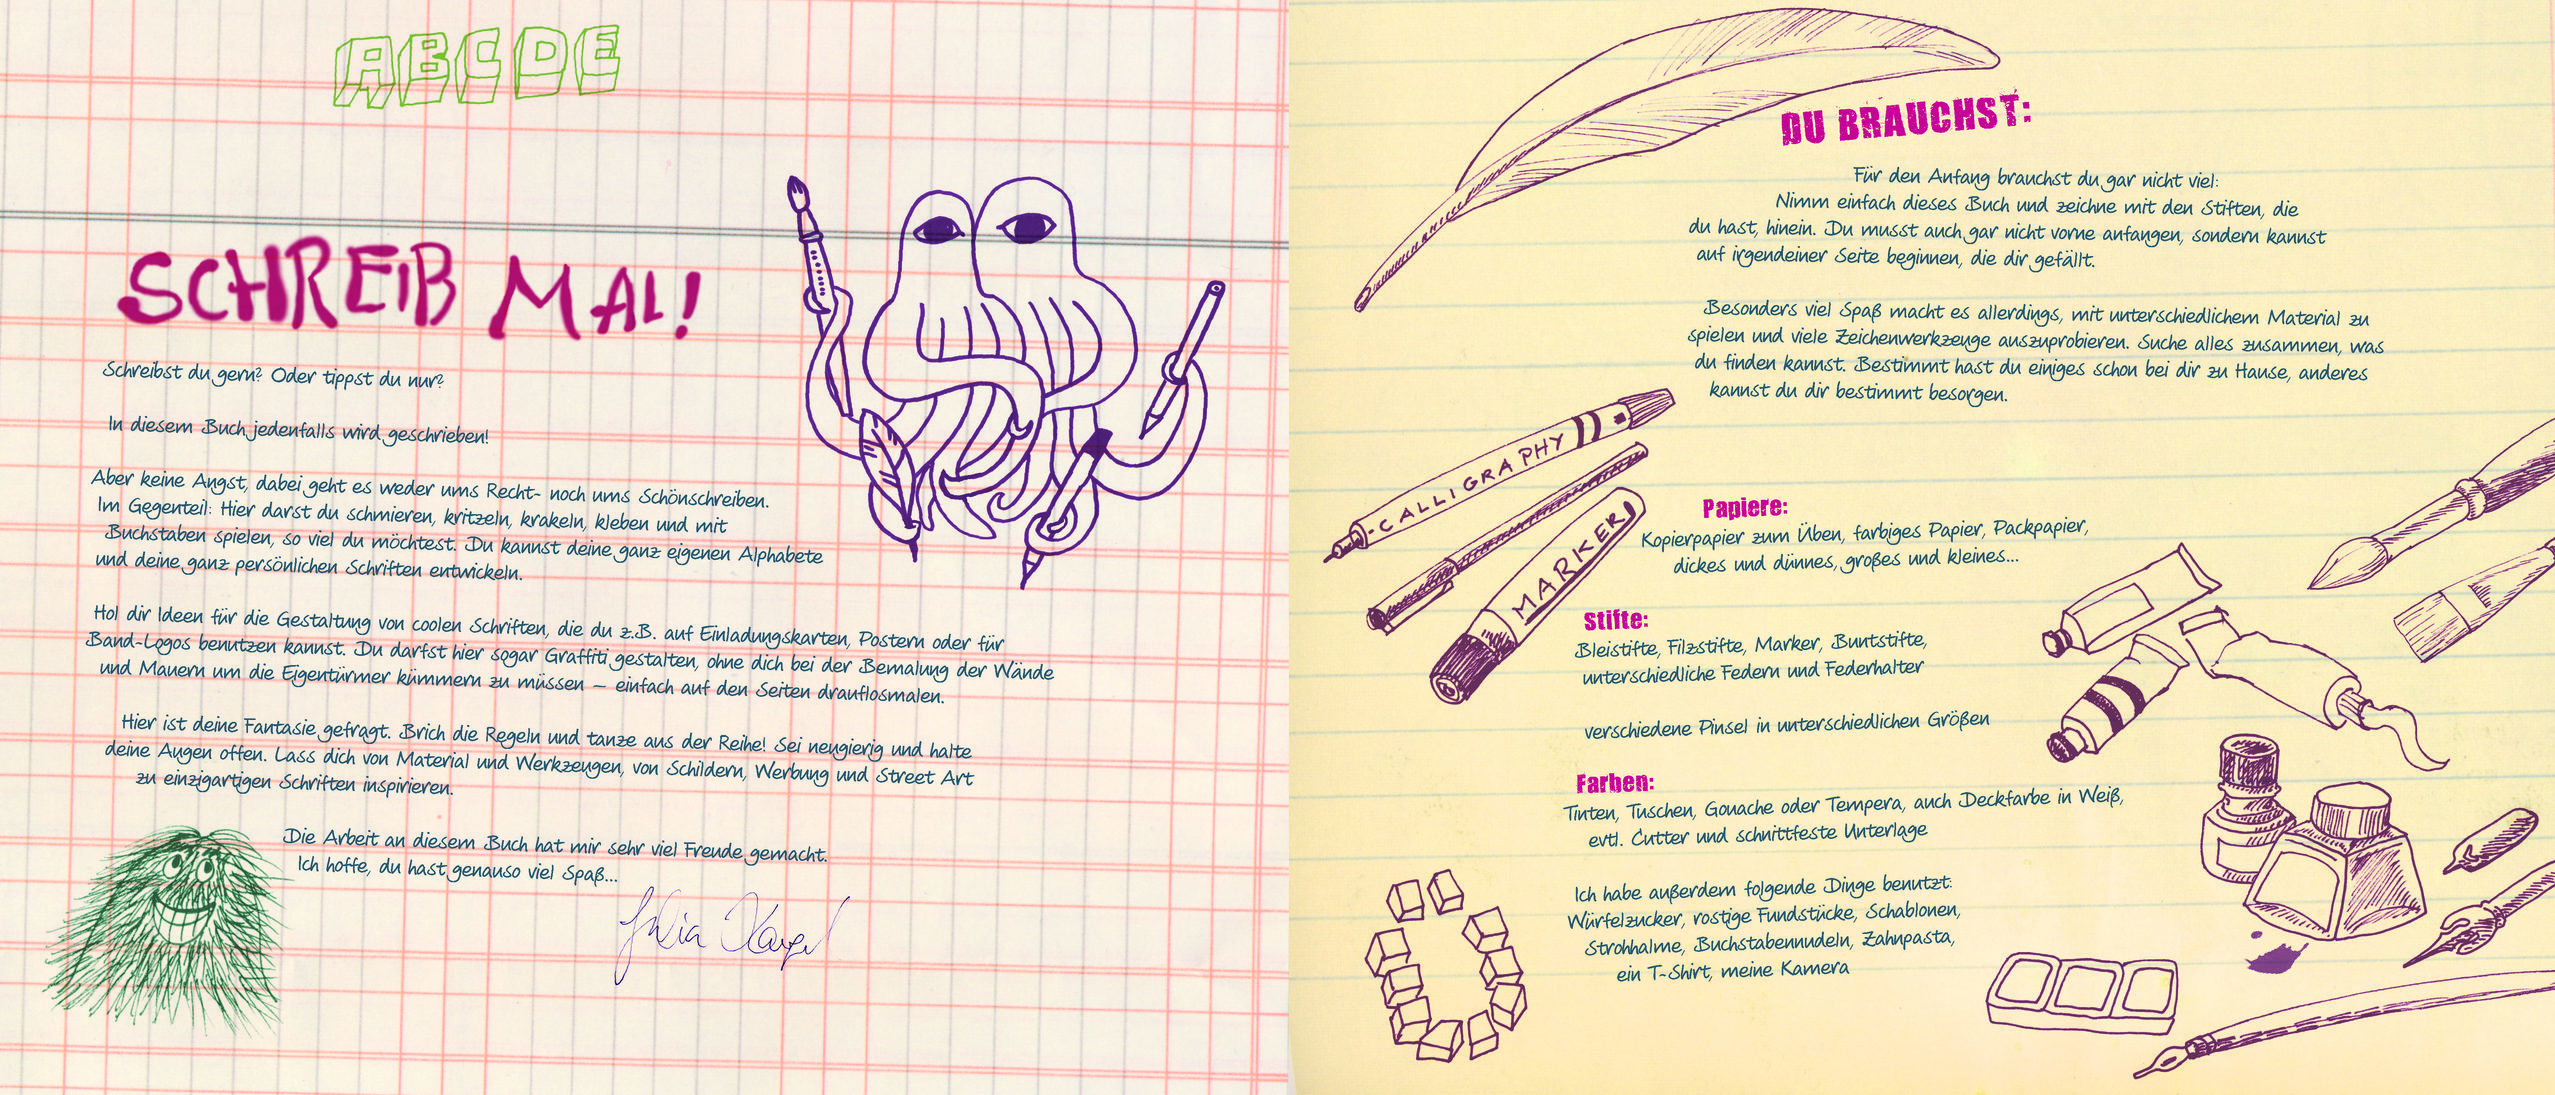 ABCDE
SCHREiB MAL!
Schreibst du gern? Oder tippst du nur?
In diesem Buch jedenfalls wird geschrieben!
Aber keine Angst, dabei geht es weder ums Recht- noch ums Schönschreiben.
Im Gegenteil: Hier darst du schmieren, kritzeln, krakeln, kleben und mit
Buchstaben spielen, so viel du möchtest. Du kannst deine ganz eigenen Alphabete
und deine ganz persönlichen Schriften entwickeln.
Hol dir Ideen für die Gestaltung von coolen Schriften, die du z.B. auf Einladungskarten, Postern oder für
Band-Logos benutzen kannst. Du darfst hier sogar Graffiti gestalten, ohne dich bei der Bemalung der Wände
und Mauern um die Eigentürmer kümmern zu müssen – einfach auf den Seiten drauflosmalen.
Hier ist deine Fantasie gefragt. Brich die Regeln und tanze aus der Reihe! Sei neugierig und halte
deine Augen offen. Lass dich von Material und Werkzeugen, von Schildern, Werbung und Street Art
zu einzigartigen Schriften inspirieren.
Die Arbeit an diesem Buch hat mir sehr viel Freude gemacht.
Ich hoffe, du hast genauso viel Spaß...
Julia
DU BRAUCHST:
Für den Anfang brauchst du gar nicht viel:
Nimm einfach dieses Buch und zeichne mit den Stiften, die
du hast, hinein. Du musst auch gar nicht vorne anfangen, sondern kannst
auf irgendeiner Seite beginnen, die dir gefällt.
Besonders viel Spaß macht es allerdings, mit unterschiedlichem Material zu
spielen und viele Zeichenwerkzeuge auszuprobieren. Suche alles zusammen, was
du finden kannst. Bestimmt hast du einiges schon bei dir zu Hause, anderes
kannst du dir bestimmt besorgen.
CALLIGRAPHY
MARKER
Papiere:
Kopierpapier zum Üben, farbiges Papier, Packpapier,
dickes und dünnes, großes und kleines...
Stifte:
Bleistifte, Filzstifte, Marker, Buntstifte,
unterschiedliche Federn und Federhalter
verschiedene Pinsel in unterschiedlichen Größen
Farben:
Tinten, Tuschen, Gouache oder Tempera, auch Deckfarbe in Weiß,
evtl. Cutter und schnittfeste Unterlage
Ich habe außerdem folgende Dinge benutzt:
Würfelzucker, rostige Fundstücke, Schablonen,
Strohhalme, Buchstabennudeln, Zahnpasta,
ein T-Shirt, meine Kamera